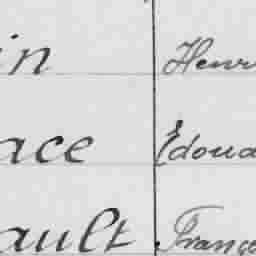 in Henri
ace Edoua
ault Franço